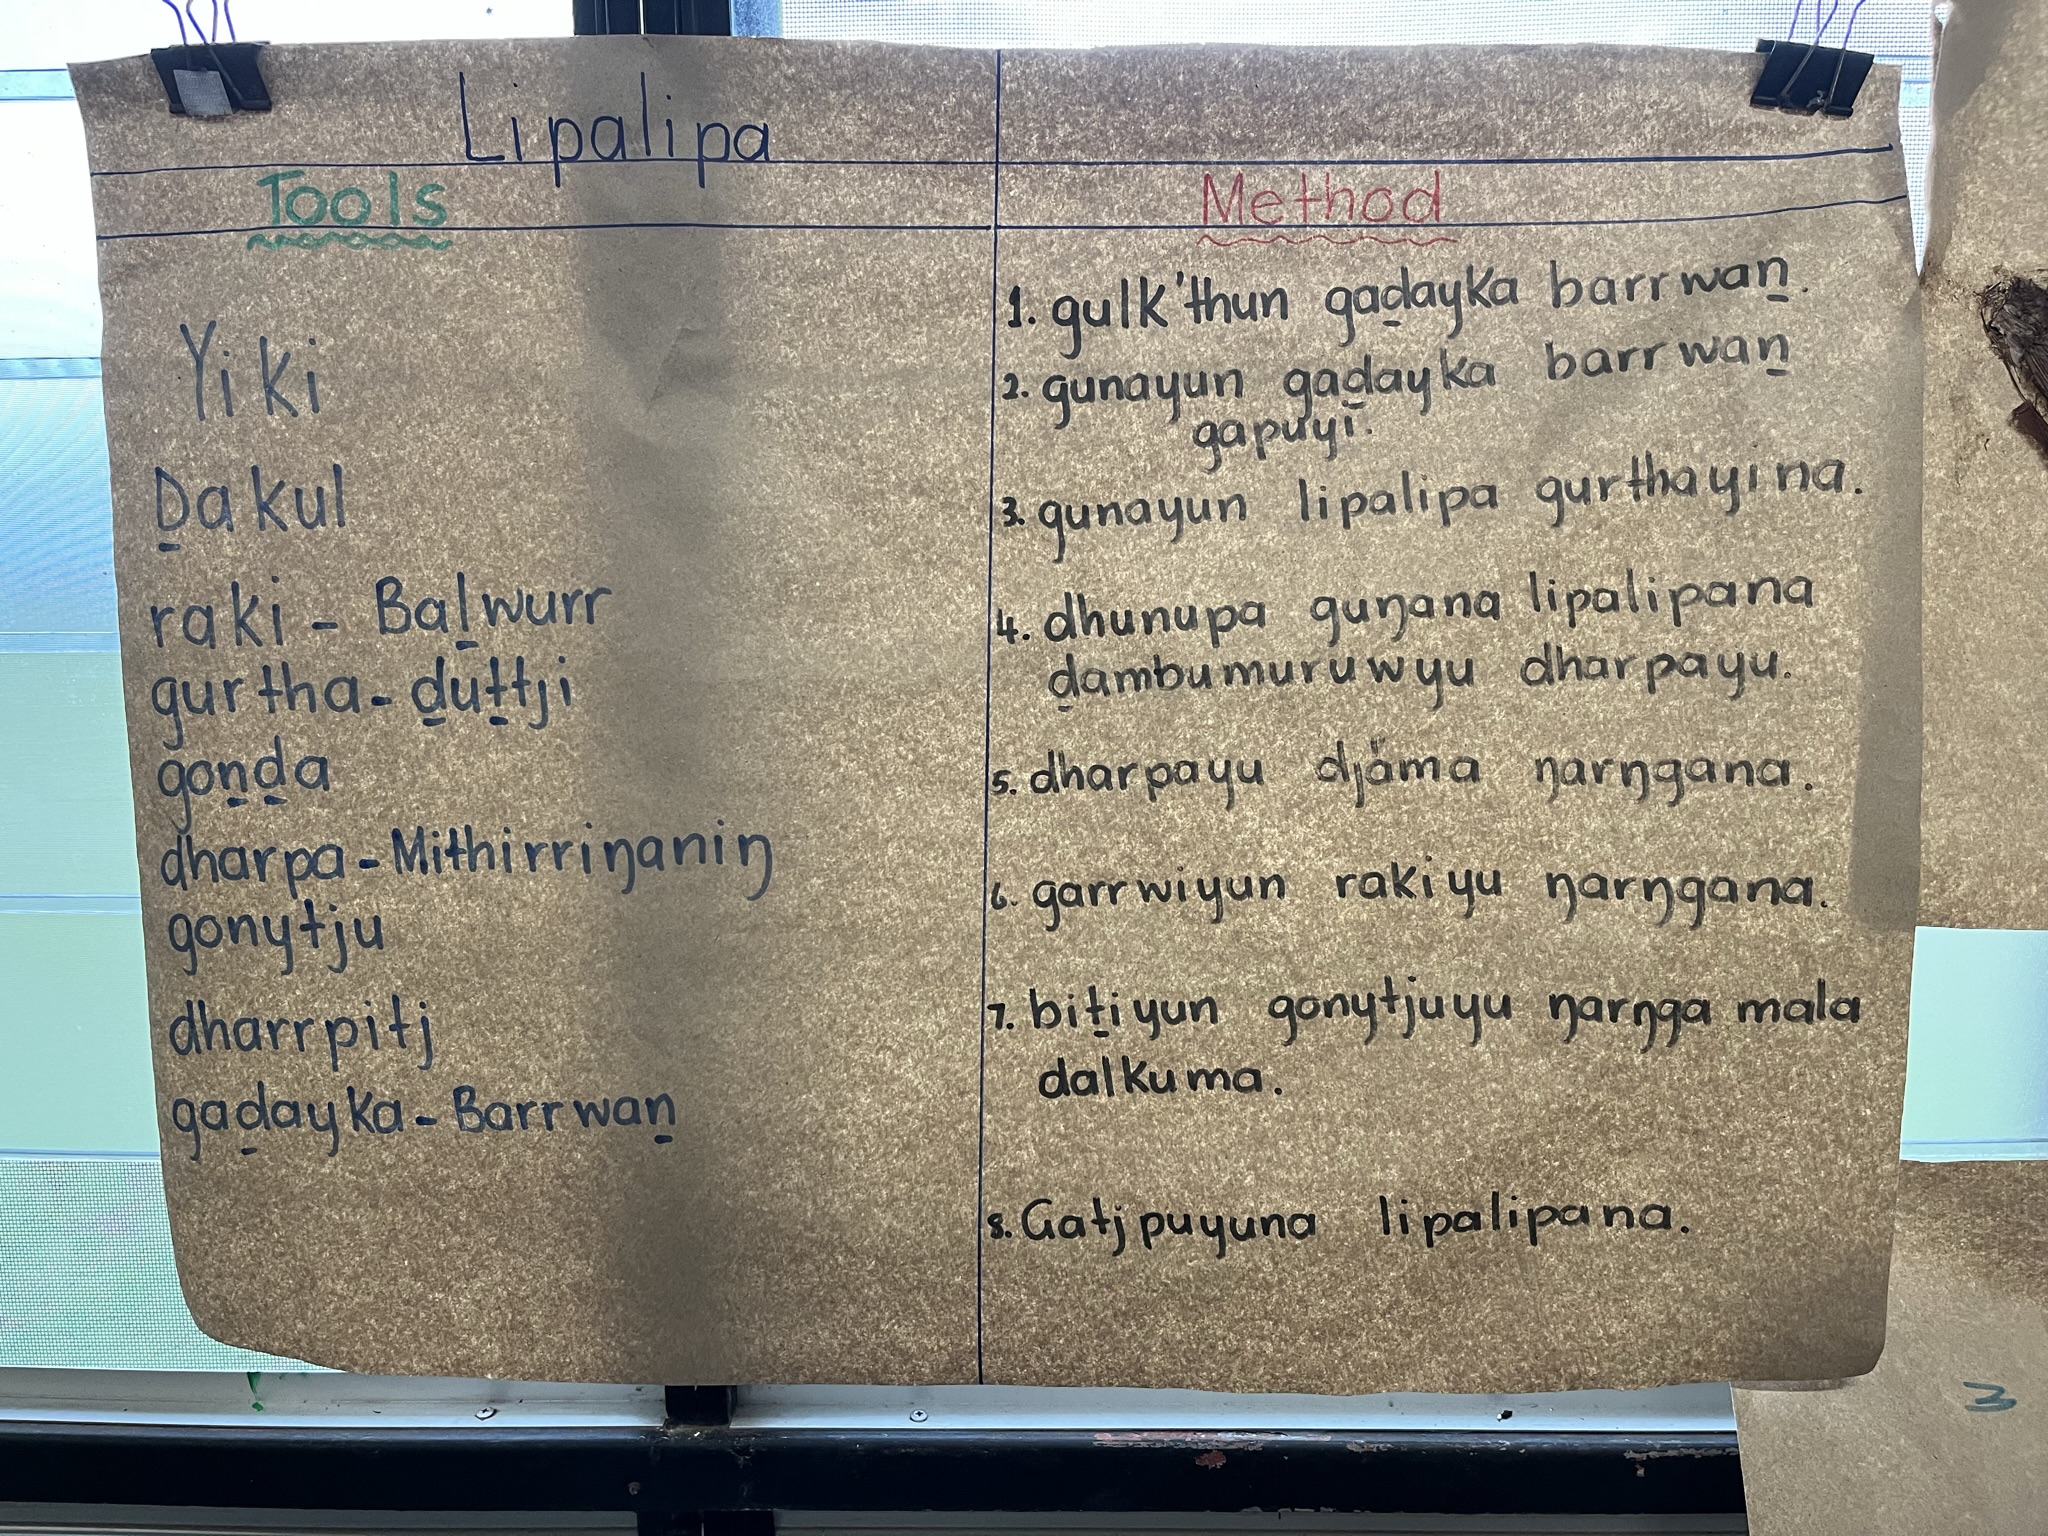 Lipalipa
Tools
Yiki
Ḏakul
raki - Baḻwurr
gurtha - ḏuṯtji
goṉḏa
dharpa - Mithirriŋaniŋ
gonytju
dharrpitj
gaḏayka - Barrwaṉ
Method
1. gulk'thun gaḏayka barrwaṉ.
2. gunayun gaḏayka barrwaṉ
gapuyi.
3. gunayun lipalipa gurthayina.
4. dhunupa guŋana lipalipana
ḏambumuruwyu dharpayu.
5. dharpayu djäma ŋarŋgana.
6. garrwiyun rakiyu ŋarŋgana.
7. biṯiyun gonytjuyu ŋarŋga mala
dalkuma.
8. Gatjpuyuna lipalipana.
3